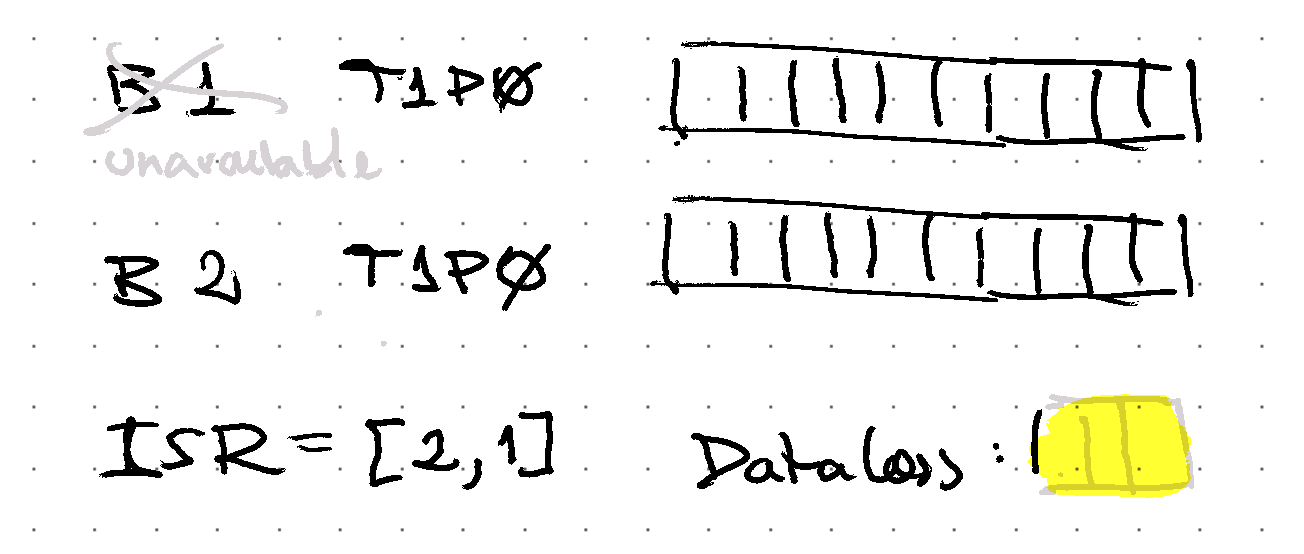 B 1 T1PØ
unavailable
B 2 T1PØ
ISR = [2,1] Data loss :